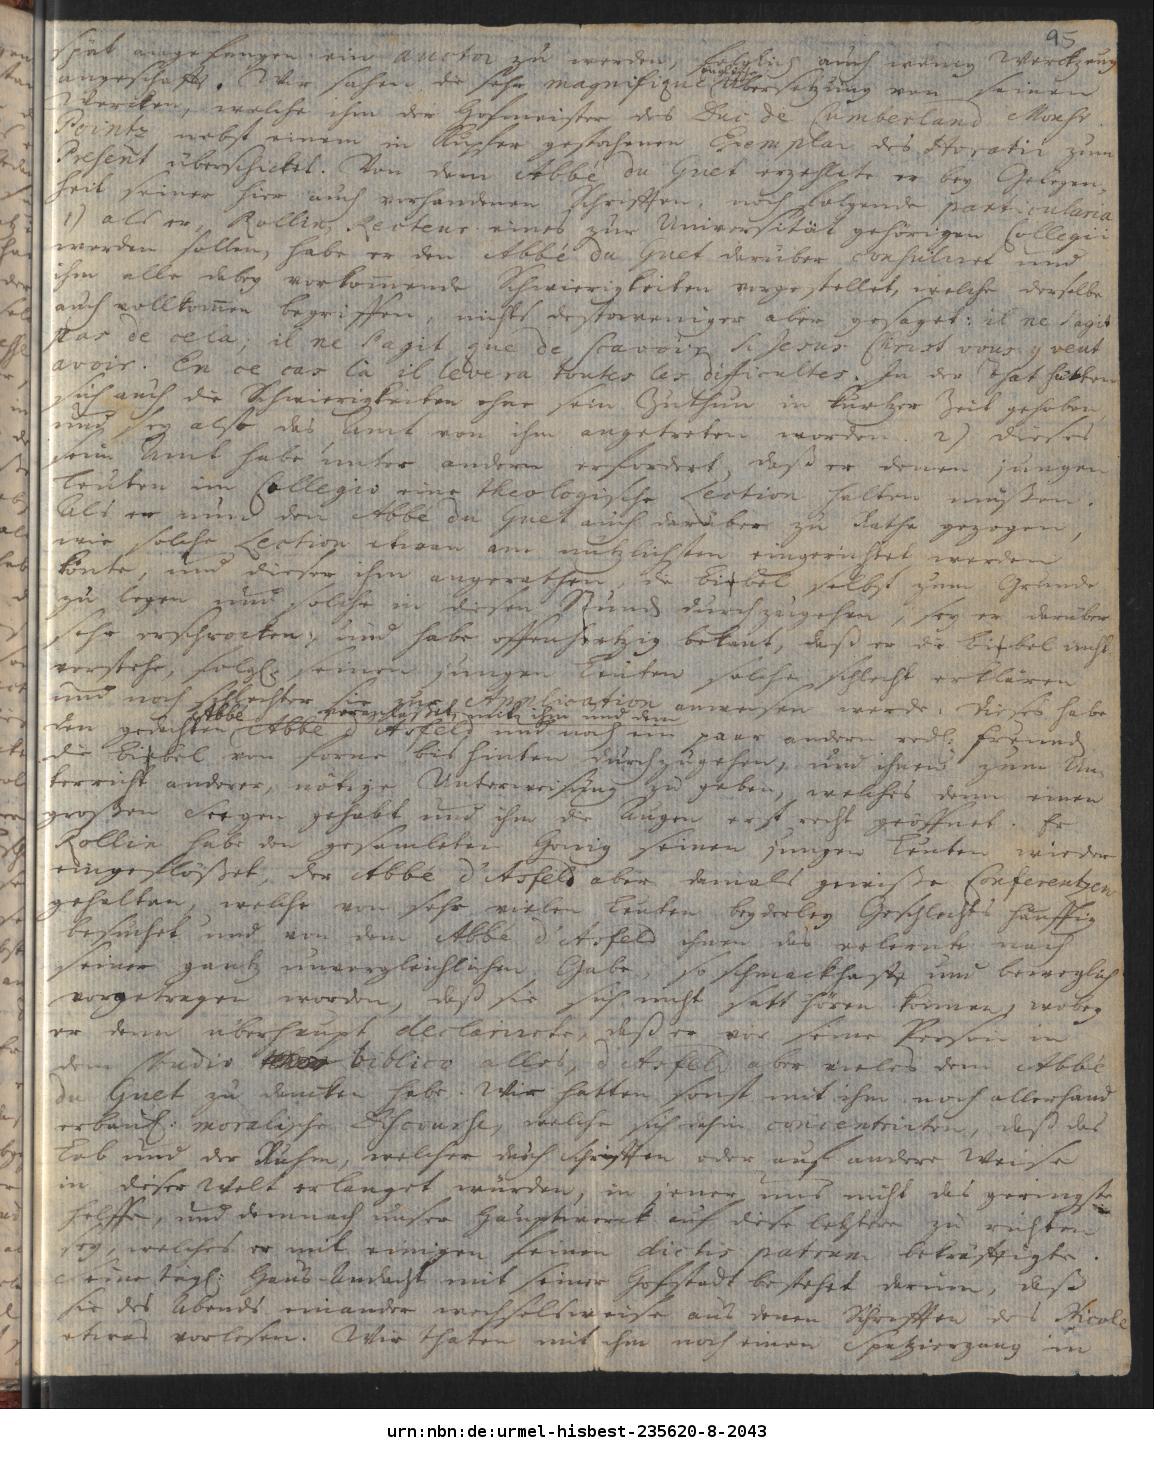 95
spät angefangen ein auctor zu werden, folglich auch wenig Werckzeug
angeschafft. Wir sahen die sehr magnifique Übersetzung von seinen
Wercken, welche ihm der Hofmeister des Duc de Cumberland Monsr.
Pointz nebst einem in Kupfer gestochenen Exemplar des Horatii zum
Present überschicket. Von dem Abbé du Guet erzehlte er bey Gelegen-
heit seiner hier auch vorhandenen Schrifften, noch folgende particularia
1) als er, Rollin, Recteur eines zur Universität gehörigen Collegii
werden sollen, habe er den Abbé du Guet darüber consuliret und
ihm alle dabey vorkom̄ende Schwierigkeiten vorgestellet, welche derselbe
auch vollkom̄en begriffen, nichts destoweniger aber gesaget: il ne s'agit
pas de cela; il ne s'agit que de scavoir si Jesus Christ vous y veut
avoir. En ce cas là il levera toutes les difficultes. In der That hätten
sich auch die Schwierigkeiten ohne sein Zuthun in kurtzer Zeit gehoben,
und sey also das Amt von ihm angetreten worden. 2) dieses
sein Amt habe unter andern erfordert, daß er denen jungen
Leuten im Collegio eine theologische Lection halten müßen.
Als er nun den Abbé du Guet auch darüber zu Rathe gezogen,
wie solche Lection etwan am nützlichsten eingerichtet werden
könte, und dieser ihm angerathen, die Bibel selbst zum Grunde
zu legen und solche in diesen Stunden durchzugehen, sey er darüber
sehr erschrocken, und habe offenhertzig bekant, daß er die Bibel nicht
verstehe, folgl. seinen jungen Leuten solche schlecht erklären
und noch schlechter sie zur Application anweisen werde. Dieses habe
den gedachten Abbé veranlasset, mit ihm und dem
Abbé d'Asfeld und noch ein paar andern redl. Freunden
die Bibel von forne bis hinten durchzugehen, und ihnen zum Un-
terricht anderer, nötige Unterweisung zu geben, welches denn einen
großen Seegen gehabt und ihm die Augen erst recht geöffnet. Er
Rollin habe den gesamleten Honig seinen jungen Leuten wieder
eingeflößet, der Abbé d'Asfeld aber damals gewiße Conferentzen
gehalten, welche von sehr vielen Leuten beyderley Geschlechts häuffig
besuchet und von dem Abbé d'Asfeld ihnen das erlernte nach
seiner gantz unvergleichlichen Gabe, so schmackhafft und beweglich
vorgetragen worden, daß sie sich nicht satt hören können, wobey
er denn überhaupt declarirete, daß er vor seine Person in
dem studio biblico alles, d'Asfeld aber vieles dem Abbé
du Guet zu dancken habe. Wir hatten sonst mit ihm noch allerhand
erbaul. moralische Discourse, welche sich dahin concentrirten, daß das
Lob und der Ruhm, welcher durch Schrifften oder auf andere Weise
in dieser Welt erlanget würden, in jener uns nicht das geringste
helffe, und demnach unser Hauptwerck auf diese letztere zu richten
sey, welches er mit einigen feinen dictis patrum bekräfftigte.
Seine tägl. Haus-Andacht mit seiner Hofstadt bestehet darinn, daß
sie des Abends einander wechselsweise aus denen Schrifften des Nicole
etwas vorlesen. Wir thaten mit ihm noch einen Spatziergang in
urn:nbn:de:urmel-hisbest-235620-8-2043